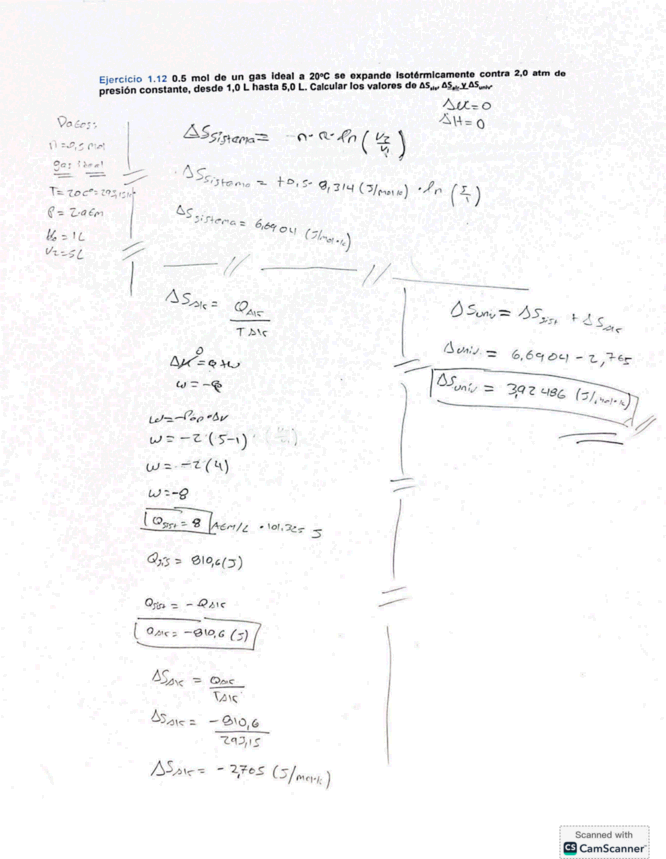 Ejercicio 1.12 0.5 mol de un gas ideal a 20ºC se expande isotérmicamente contra 2,0 atm de
presión constante, desde 1,0 L hasta 5,0 L. Calcular los valores de ΔSsis, ΔSalr y ΔSuniv.
Δu=0
ΔH=0
Datos:
n=0,5 mol
gas ideal
T=20Cº=293,15K
P= 2atm
V0=1L
V2=5L
ΔSsistema= n·R·ln(V2/V1)
ΔSsistema= +0,5·8,314(J/mol·k)·ln(5/1)
ΔSsistema= 6,6904 (J/mol·k)
ΔSAlr= QAlr/TAlr
0
ΔU=Q+W
W=-Q
W=-Pop·ΔV
W=-2(5-1)
W=-2(4)
W=-8
Qsist= 8 Atm/L · 101,325 J
Qsis= 810,6(J)
Qsist= -QAlr
QAlr= -810,6(J)
ΔSAlr= QAlr/TAlr
ΔSAlr= -810,6/293,15
ΔSAlr= -2,765 (J/mol·k)
ΔSuniv= ΔSsist + ΔSAlr
Δuniv.= 6,6904-2,765
ΔSuniv= 3,92486 (J/mol·k)
Scanned with
CS CamScanner